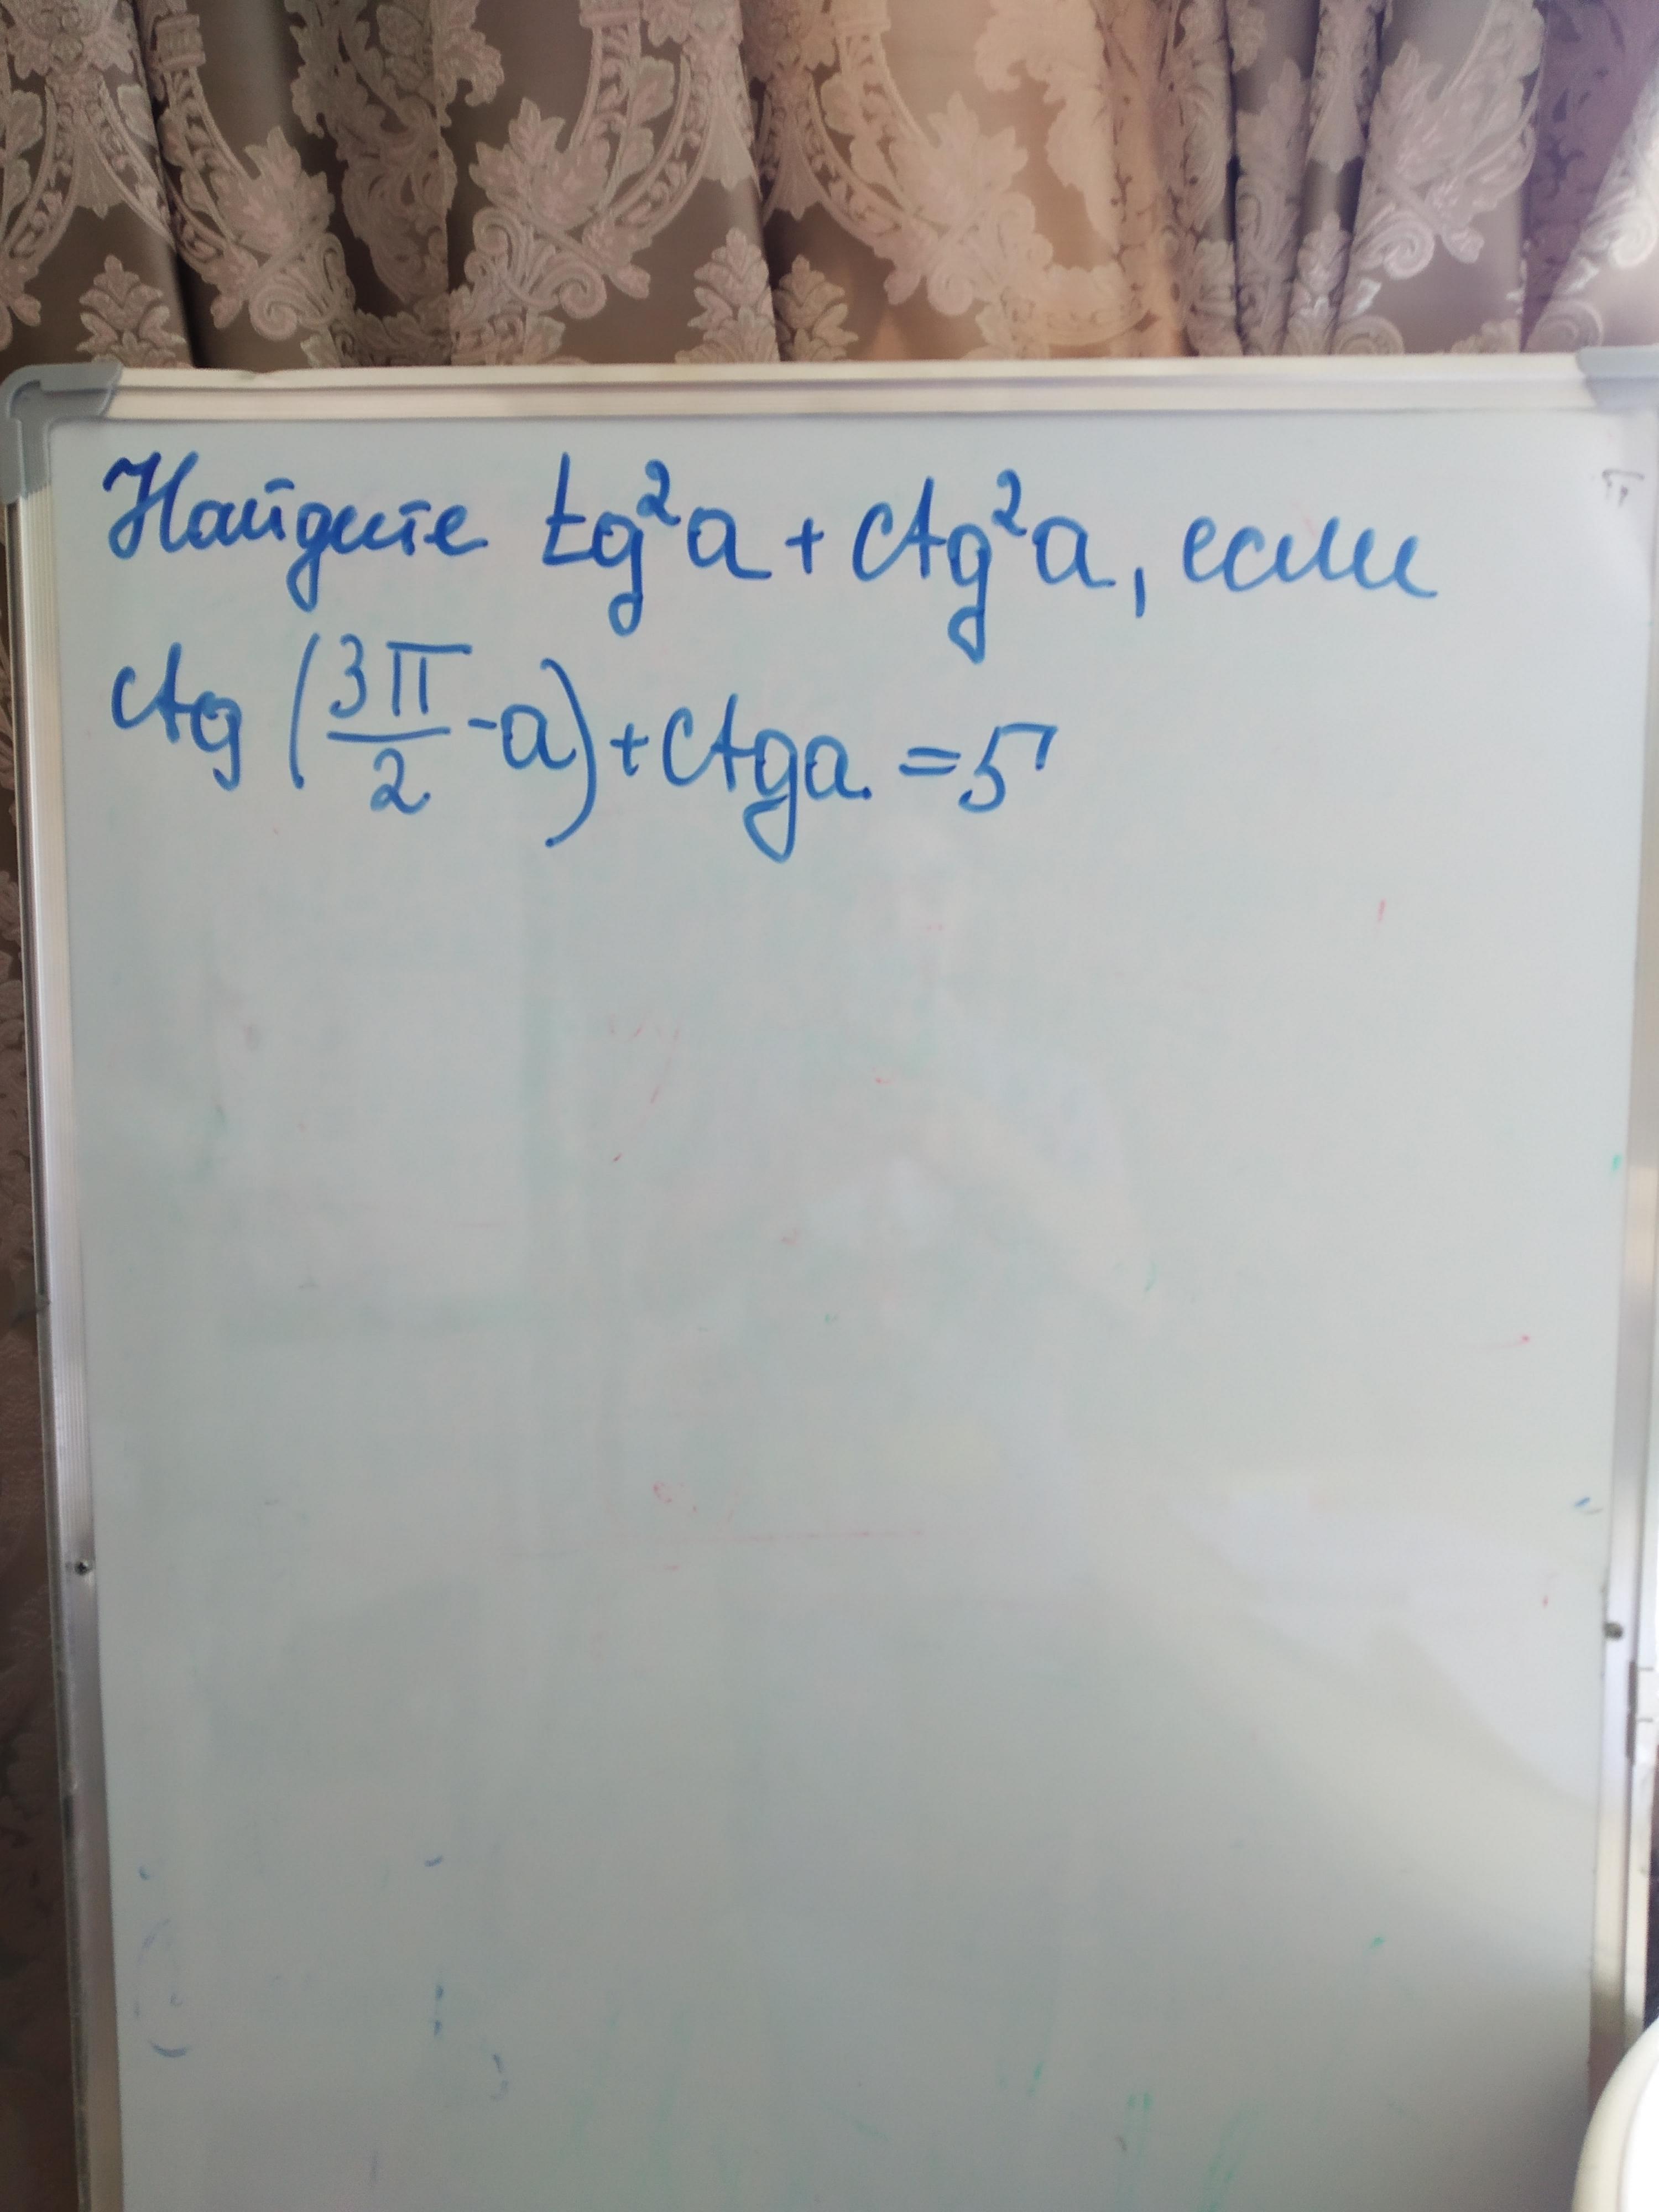 Найдите tg²a + ctg²a, если
ctg (3π/2 - a) + ctga. = 5
π